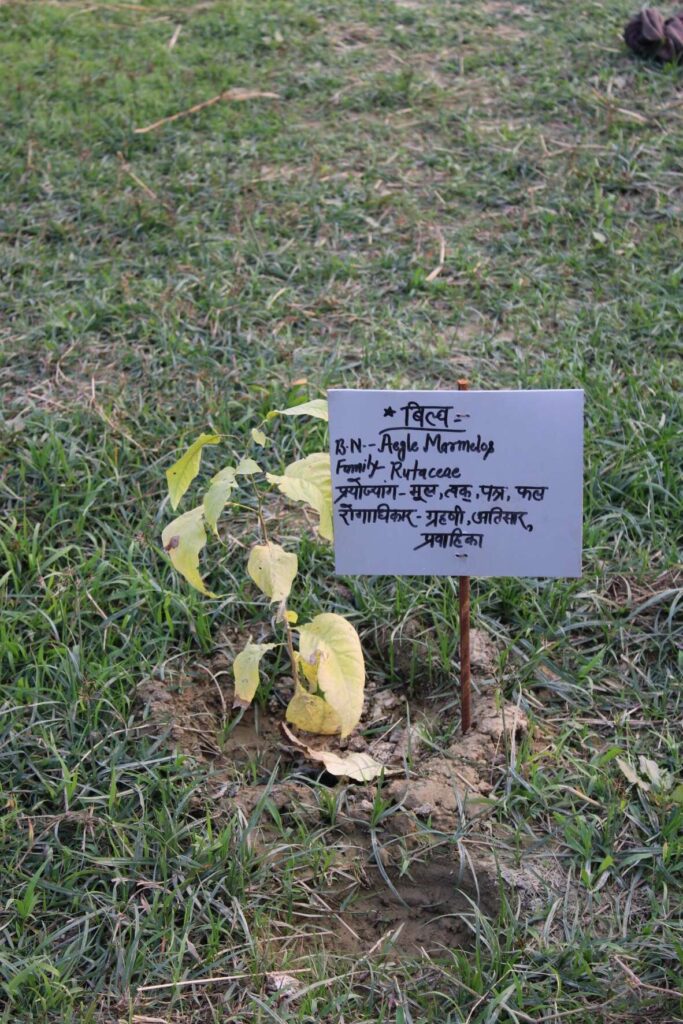 * बिल्व :-
B.N-- Aegle Marmelos
Family- Rutaceae
प्रयोज्यांग- मूल, त्वक्, पत्र, फल
रोगाधिकार- ग्रहणी, अतिसार,
प्रवाहिका